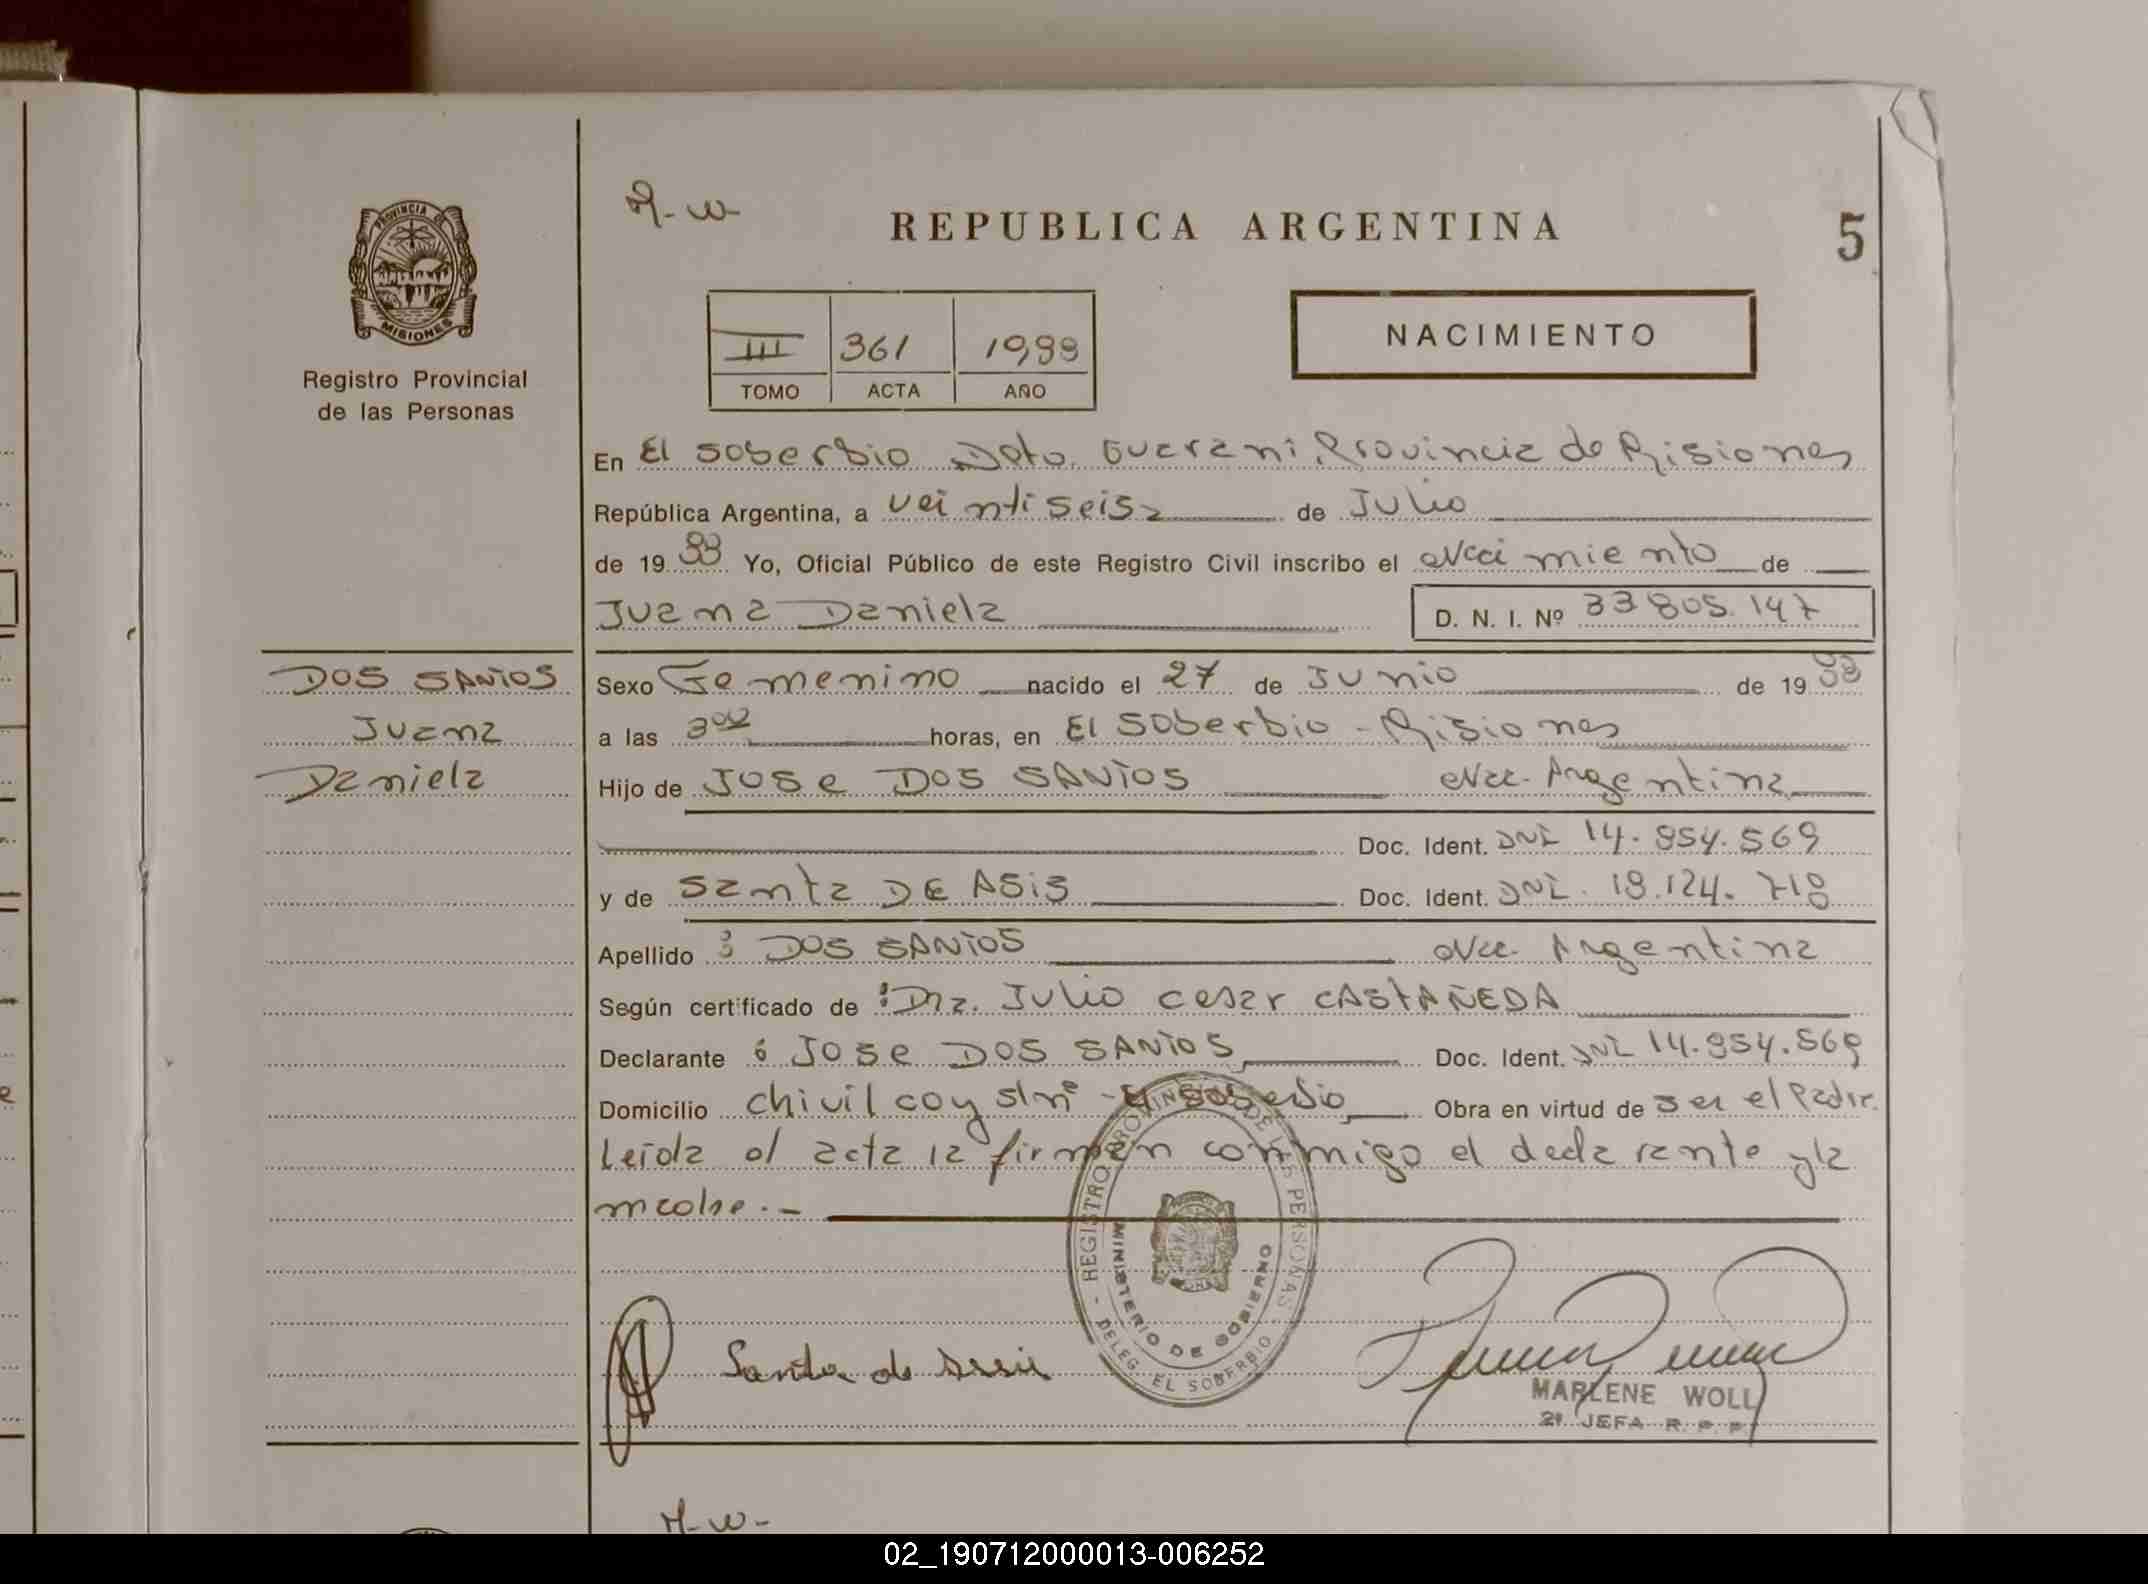 M-W-
REPUBLICA ARGENTINA
5
PROVINCIA DE
MISIONES
Registro Provincial
de las Personas
III 361 1988
TOMO ACTA AÑO
NACIMIENTO
En El Soberbio Dpto. Guarani, Provincia de Misiones
República Argentina, a veintiseis de Julio
de 1988 Yo, Oficial Público de este Registro Civil inscribo el Nacimiento de
Juana Daniela D. N. I. Nº 33805.147
DOS SANTOS
Juana
Daniela
Sexo Femenino nacido el 27 de Junio de 1988
a las 3 horas, en El Soberbio - Misiones
Hijo de Jose DOS SANTOS Nac. Argentina
Doc. Ident. DNI 14.954.569
y de Santa DE ASIS Doc. Ident. DNI. 18.124.718
Apellido : DOS SANTOS Nac. Argentina
Según certificado de : Dr. Julio Cesar CASTAÑEDA
Declarante : Jose DOS SANTOS Doc. Ident. DNI 14.954.569
Domicilio chivilcoy s/nº - El Soberbio Obra en virtud de ser el Padre.
Leida el acta la firman conmigo el declarante y la
madre.-
REGISTRO PROVINCIAL DE LAS PERSONAS - DELEG. EL SOBERBIO -
MINISTERIO DE GOBIERNO
Santa de Assis
MARLENE WOLL
2ª JEFA R. P. P.
M-W-
02_190712000013-006252